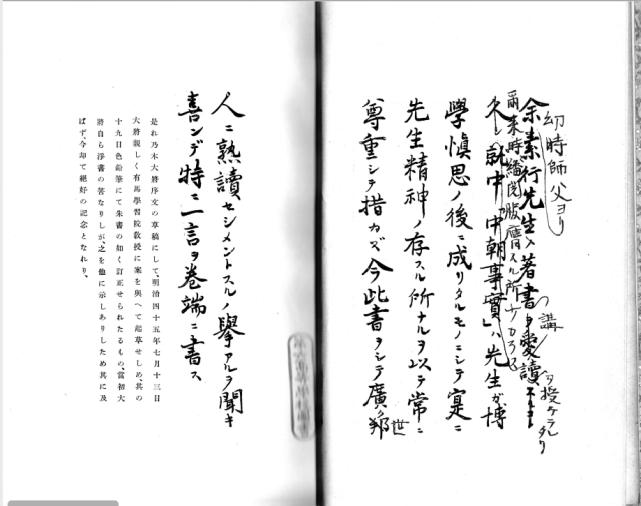 幼時師父ヨリ
余素行先生ノ著書ヲ愛讀スルコト
ノ講
ヲ授ケラレタリ
爾来時繙閲服膺スル所少カラス
久シ就中「中朝事實」ハ先生ガ博
學慎思ノ後ニ成リタルモノニシテ寔ニ
先生精神ノ存スル所ナルヲ以テ常ニ
尊重シテ措カズ今此書ヲシテ廣ク邦
世
人ニ熟讀セシメントスルノ擧アルヲ聞キ
喜ンデ特ニ一言ヲ巻端ニ書ス
是れ乃木大將序文の草稿にして、明治四十五年七月十三日
大將親しく有馬學習院教授に案を與へて起草せしめ、其の
十九日色鉛筆にて朱書の如く訂正せられたるもの、當初大
將自ら淨書の筈なりしが、之を他に示しありしため其に及
ばず、今却て絶好の記念となれり。